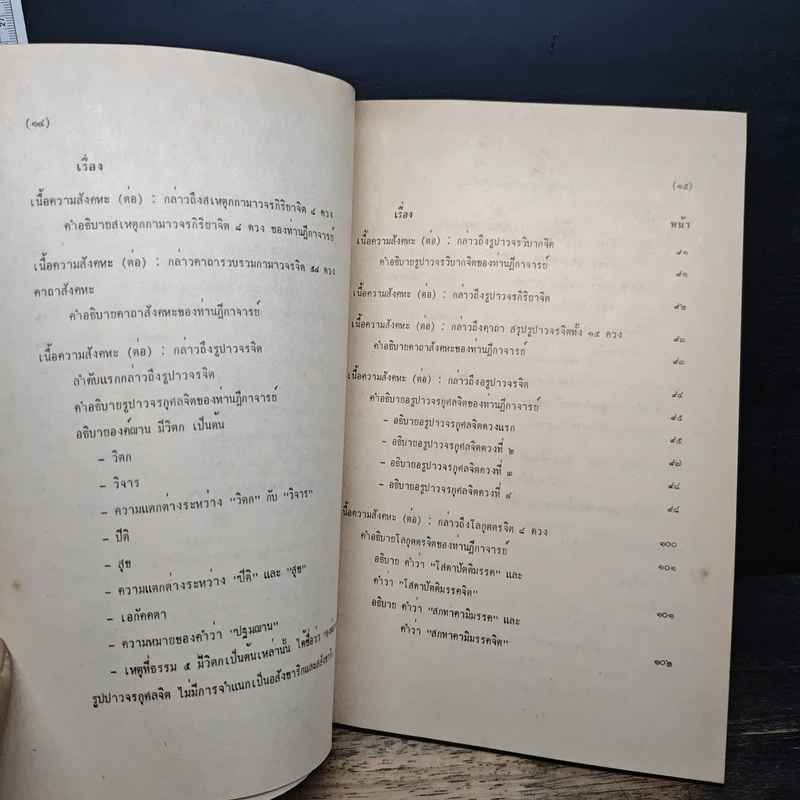 (๑๔)
เรื่อง
เนื้อความสังคหะ (ต่อ) : กล่าวถึงสเหตุกกามาวจรกิริยาจิต ๘ ดวง
คำอธิบายสเหตุกกามาวจรกิริยาจิต ๘ ดวง ของท่านฎีกาจารย์
เนื้อความสังคหะ (ต่อ) : กล่าวคาถารวบรวมกามาวจรจิต ๕๔ ดวง
คาถาสังคหะ
คำอธิบายคาถาสังคหะของท่านฎีกาจารย์
เนื้อความสังคหะ (ต่อ) : กล่าวถึงรูปาวจรจิต
ลำดับแรกกล่าวถึงรูปาวจรจิต
คำอธิบายรูปาวจรกุศลจิตของท่านฎีกาจารย์
อธิบายองค์ฌาน มีวิตก เป็นต้น
- วิตก
- วิจาร
- ความแตกต่างระหว่าง "วิตก" กับ "วิจาร"
- ปีติ
- สุข
- ความแตกต่างระหว่าง "ปีติ" และ "สุข"
- เอกัคคตา
- ความหมายของคำว่า "ปฐมฌาน"
- เหตุที่ธรรม ๕ มีวิตกเป็นต้นเหล่านั้น ได้ชื่อว่า
รูปปาวจรกุศลจิต ไม่มีการจำแนกเป็นอสังขาริกและสสังขาริก
(๑๕)
เรื่อง หน้า
เนื้อความสังคหะ (ต่อ) : กล่าวถึงรูปาวจรวิบากจิต ๙๑
คำอธิบายรูปาวจรวิบากจิตของท่านฎีกาจารย์ ๙๑
เนื้อความสังคหะ (ต่อ) : กล่าวถึงรูปาวจรกิริยาจิต ๙๒
เนื้อความสังคหะ (ต่อ) : กล่าวถึงคาถา สรุปรูปาวจรจิตทั้ง ๑๕ ดวง ๙๓
คำอธิบายคาถาสังคหะของท่านฎีกาจารย์ ๙๓
เนื้อความสังคหะ (ต่อ) : กล่าวถึงอรูปาวจรจิต ๙๔
คำอธิบายอรูปาวจรกุศลจิตของท่านฎีกาจารย์ ๙๕
- อธิบายอรูปาวจรกุศลจิตดวงแรก ๙๕
- อธิบายอรูปาวจรกุศลจิตดวงที่ ๒ ๙๗
- อธิบายอรูปาวจรกุศลจิตดวงที่ ๓ ๙๘
- อธิบายอรูปาวจรกุศลจิตดวงที่ ๔ ๙๘
เนื้อความสังคหะ (ต่อ) : กล่าวถึงโลกุตตรจิต ๘ ดวง ๑๐๐
คำอธิบายโลกุตตรจิตของท่านฎีกาจารย์ ๑๐๑
อธิบาย คำว่า "โสดาปัตติมรรค" และ
คำว่า "โสดาปัตติมรรคจิต" ๑๐๑
อธิบาย คำว่า "สกทาคามิมรรค" และ
คำว่า "สกทาคามิมรรคจิต" ๑๐๒